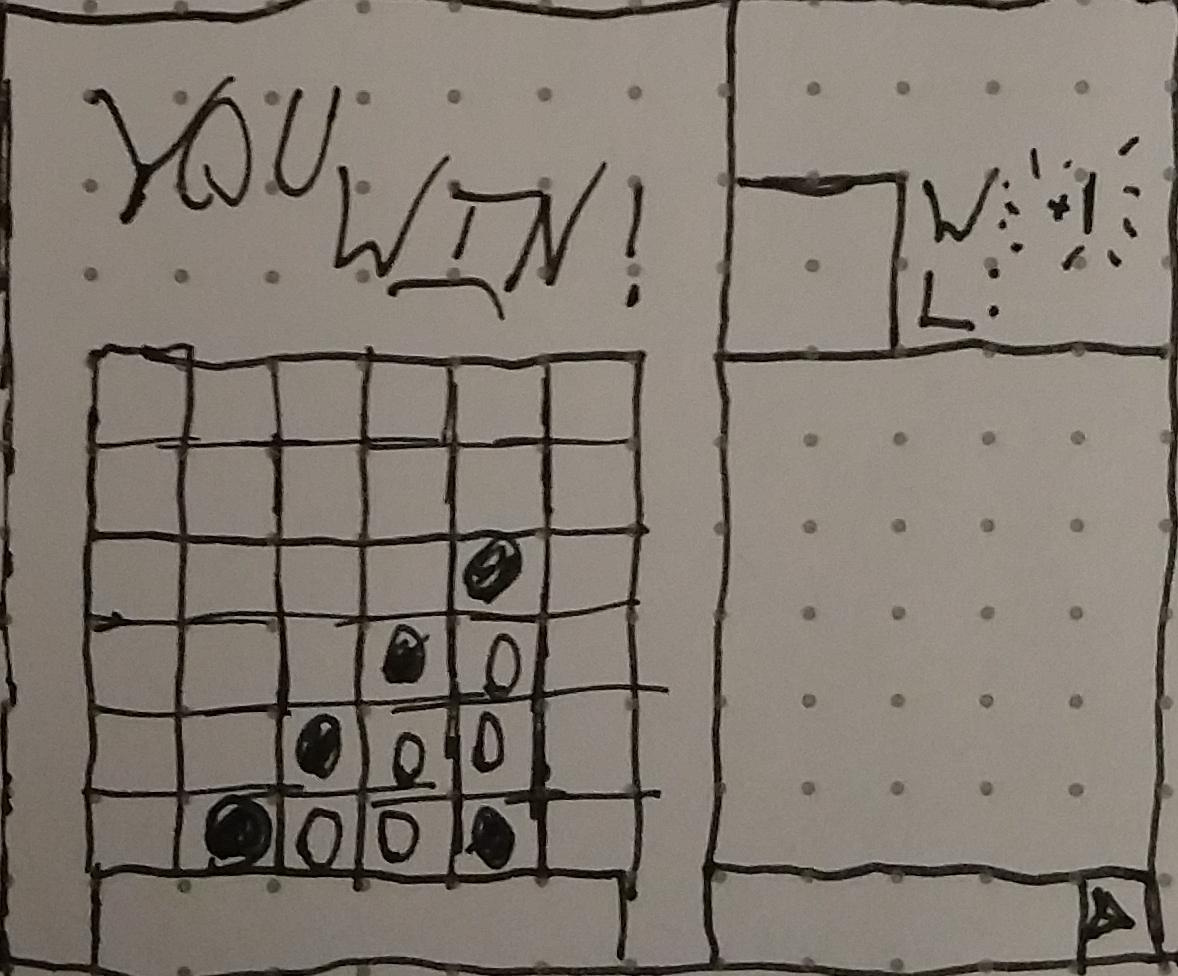 YOU
WIN!
W: +1
L: